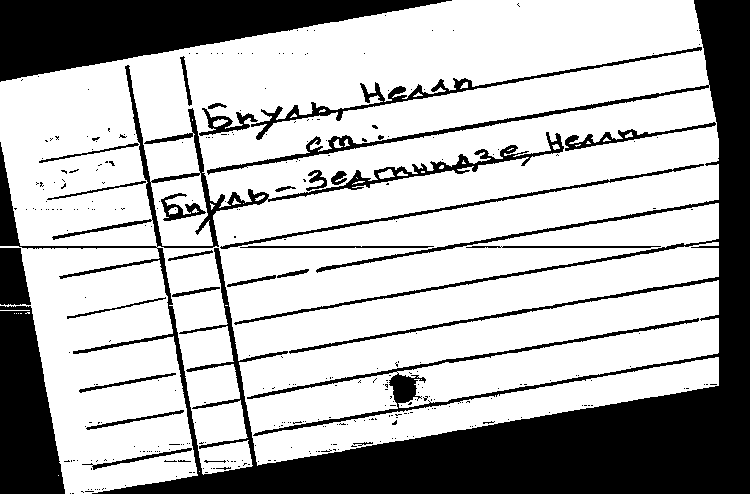 Биуль, Нелли
ст.:
Биуль-Зедгинидзе, Нелли.